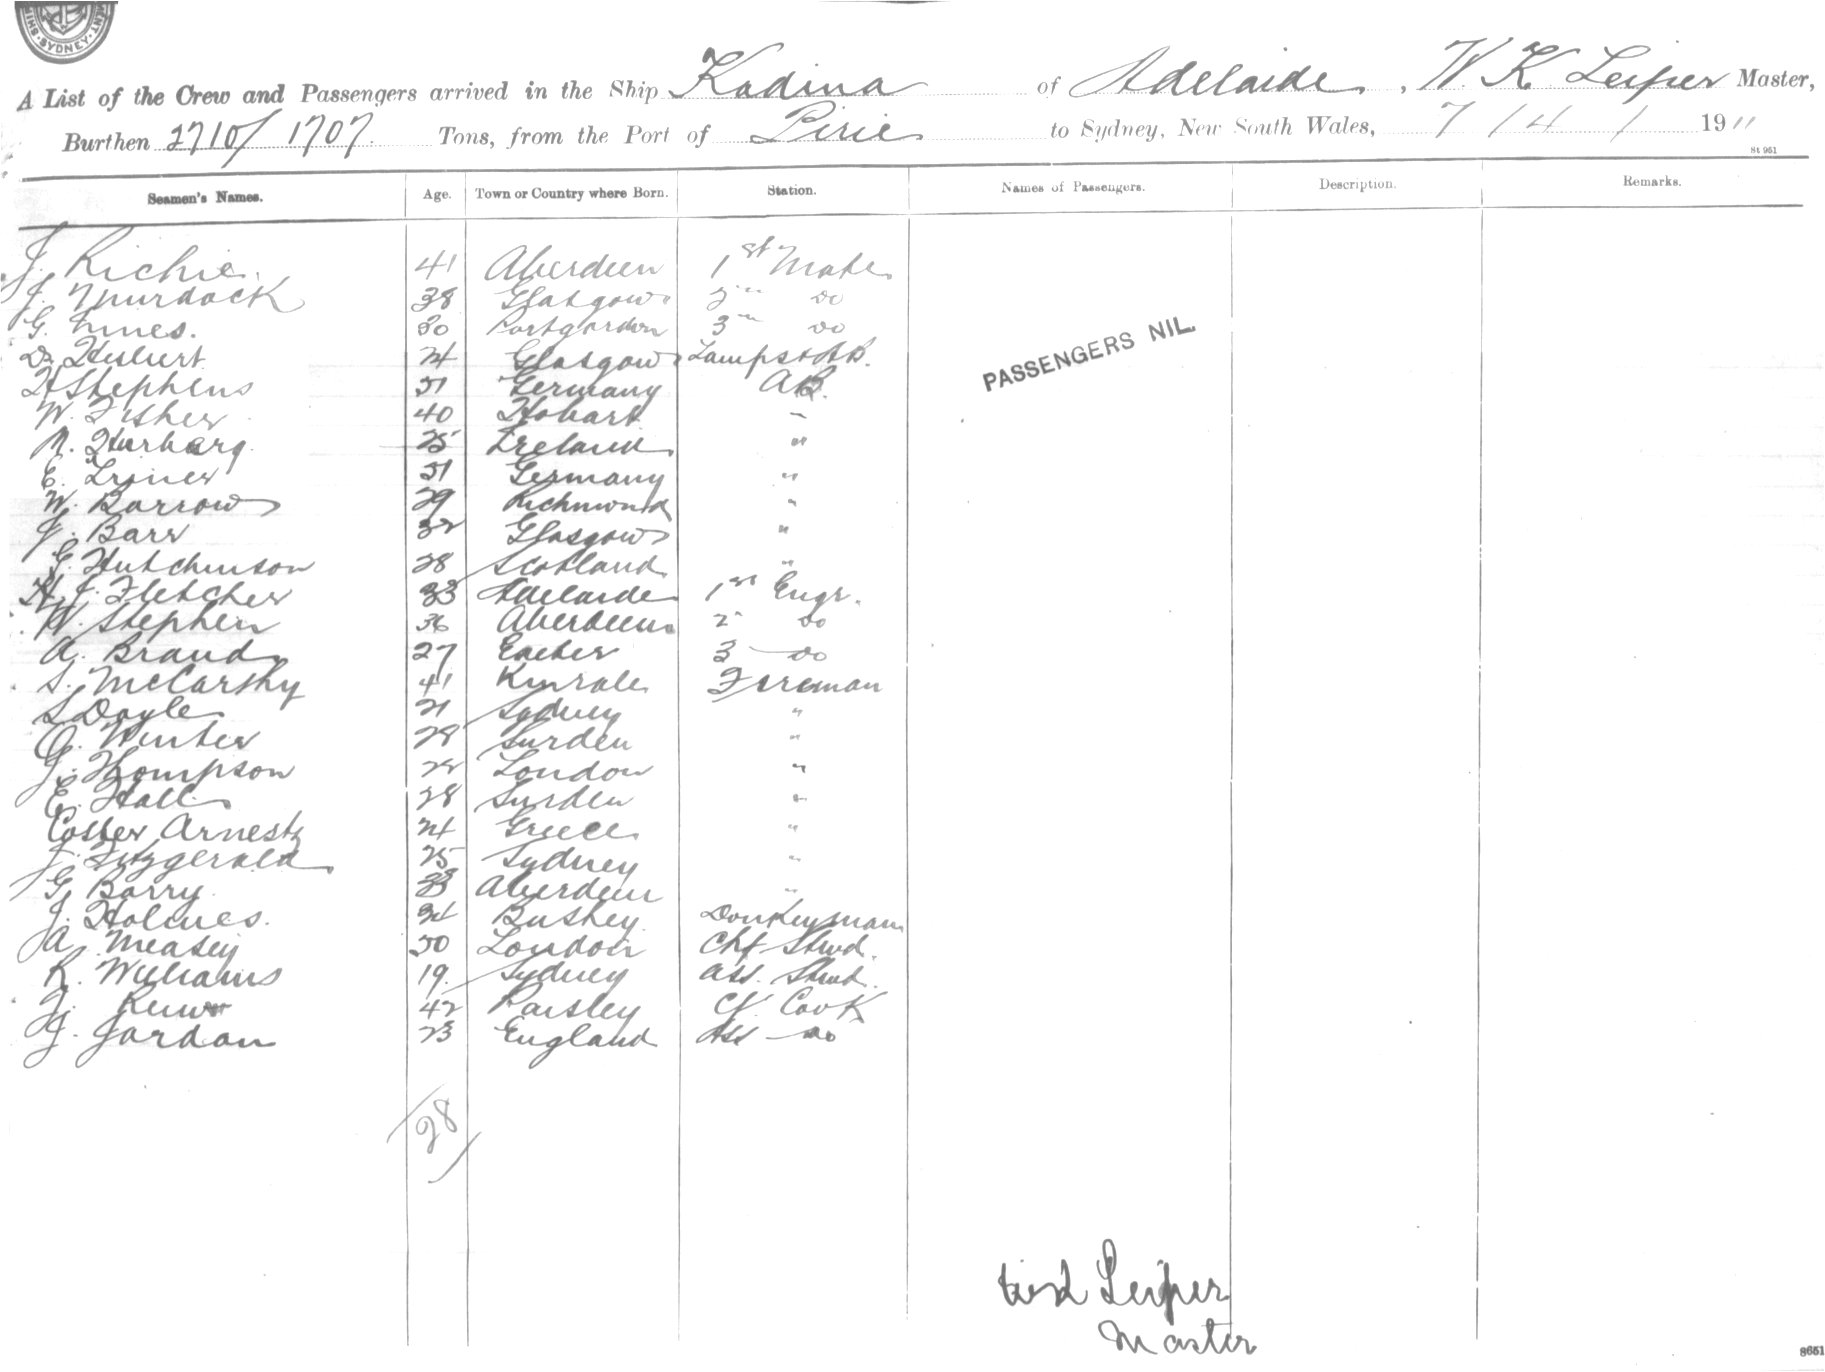 SYDNEY
A List of the Crew and Passengers arrived in the Ship Kadina of Adelaide, W. K Leiper Master,
Burthen 2710/1707 Tons, from the Port of Pirie to Sydney, New South Wales, 7/4/1911
St 951
Seamen's Names. Age. Town or Country where Born. Station. Names of Passengers. Description. Remarks.
J. Richie. 41 Aberdeen 1st Mate
J. Murdock 38 Glasgow 2nd do
G. Innes. 30 Portgordon 3rd do
D. 24 Glasgow Lamps & AB.
H Stephens 51 Germany AB.
W. Fisher 40 Hobart "
25 Ireland "
E. 51 Germany "
W. Barrow 29 Richmond "
J. Barr 32 Glasgow "
G. Hutchinson 28 Scotland "
H. J. Fletcher 33 Adelaide 1st Engr.
W. Stephen 36 Aberdeen 2 do
A. Brand 27 Exeter 3 do
S. McCarthy 41 Kinsale Fireman
S Doyle 21 Sydney "
A. Winter 28 "
J. Thompson 28 London "
E. Hall 28 "
24 Greece "
J. Fitzgerald 25 Sydney "
G. Barry 33 Aberdeen "
J. Holmes. 34 Bushey Donkeyman
A. Measey 50 London Chf Stwd.
R. Williams 19. Sydney Ass. Stwd.
J. 42 Paisley Cf. Cook
J. Jordan 23 England Ass do
PASSENGERS NIL.
28
Leiper
Master
8651